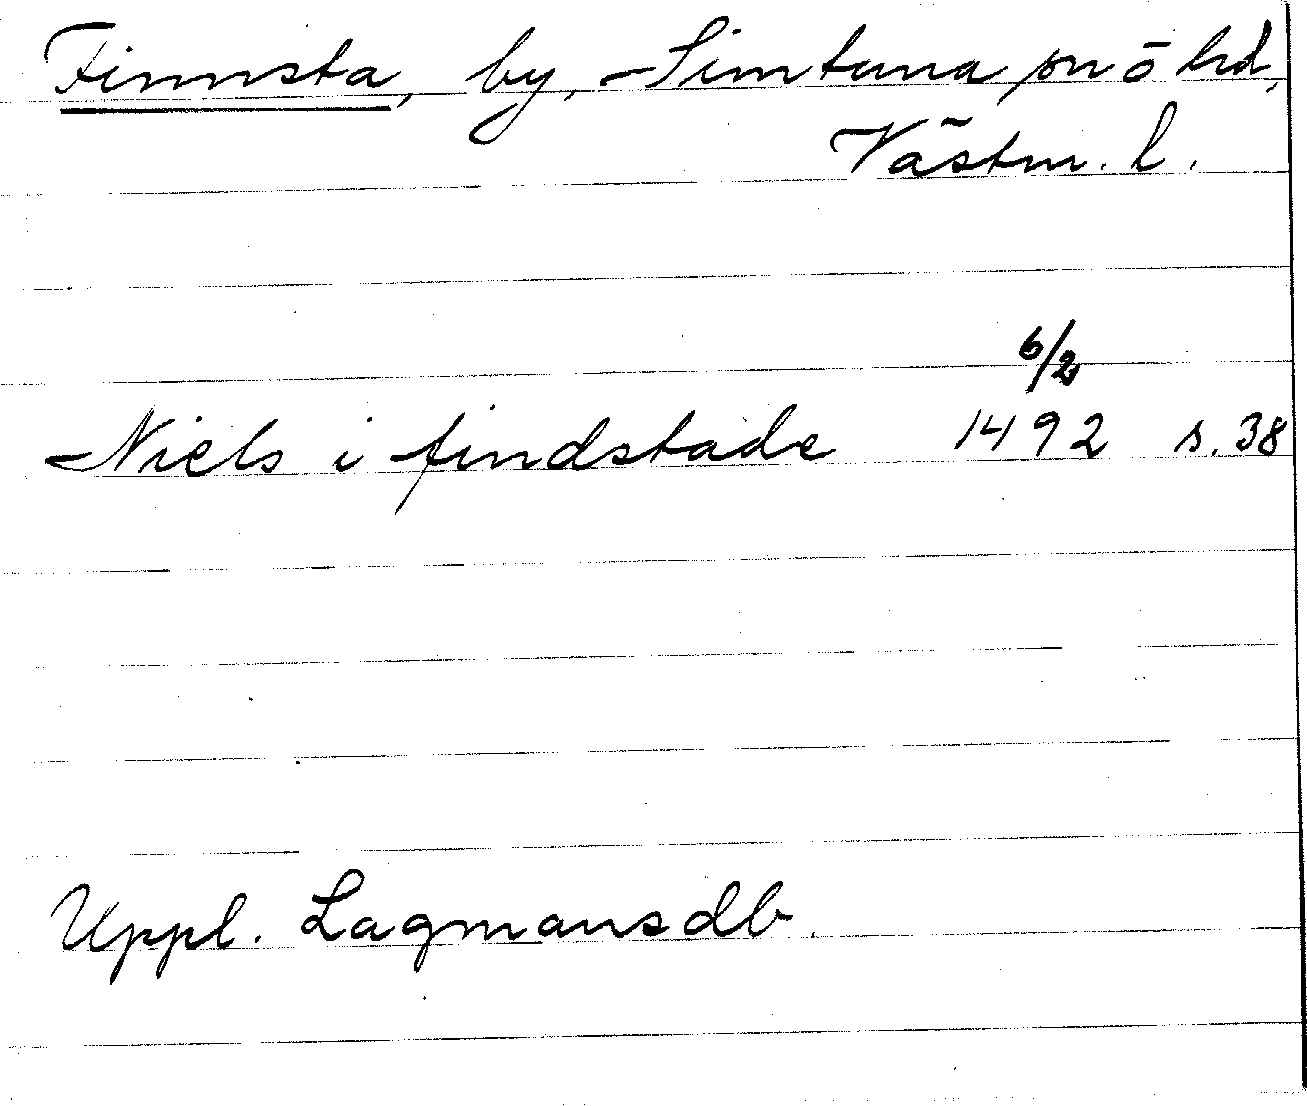 Finnsta, by, Simtuna sn ö hd,
Västm. l.
6/2
Niels i findstade 1492 s. 38
Uppl. Lagmansdb.